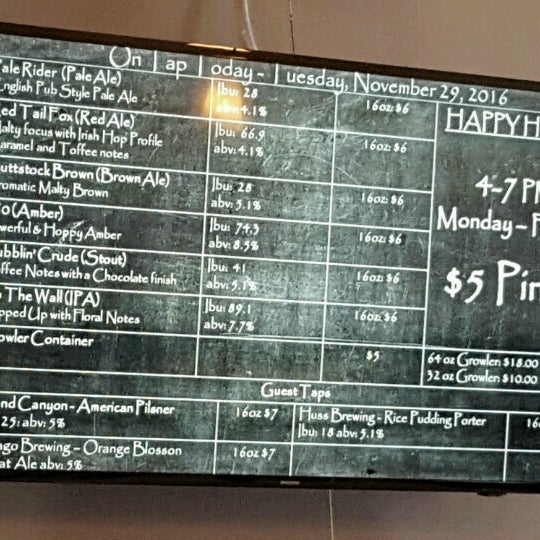 On Tap Today - Tuesday, November 29, 2016
ale Rider (Pale Ale)
nglish Pub Style Pale Ale
Ibu: 28
abv: 4.1%
16oz: $6
ed Tail Fox (Red Ale)
alty focus with Irish Hop Profile
aramel and Toffee notes
Ibu: 66.9
abv: 4.1%
16oz: $6
uttstock Brown (Brown Ale)
romatic Malty Brown
Ibu: 28
abv: 5.1%
16oz: $6
io (Amber)
werful & Hoppy Amber
Ibu: 74.3
abv: 8.5%
16oz: $6
ubblin' Crude (Stout)
offee Notes with a Chocolate finish
Ibu: 41
abv: 5.1%
16oz: $6
The Wall (IPA)
pped Up with Floral Notes
Ibu: 89.1
abv: 7.7%
16oz: $6
owler Container
$5
HAPPY H
4-7 PM
Monday - F
$5 Pin
64 oz Growler: $18.00
32 oz Growler: $10.00
Guest Taps
nd Canyon - American Pilsner
25: abv: 5%
16oz $7
Huss Brewing - Rice Pudding Porter
Ibu: 18 abv: 5.1%
16
ago Brewing - Orange Blosson
at Ale abv: 5%
16oz $7